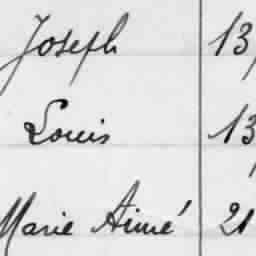 Joseph 13
Louis 13
Marie Aimé 21